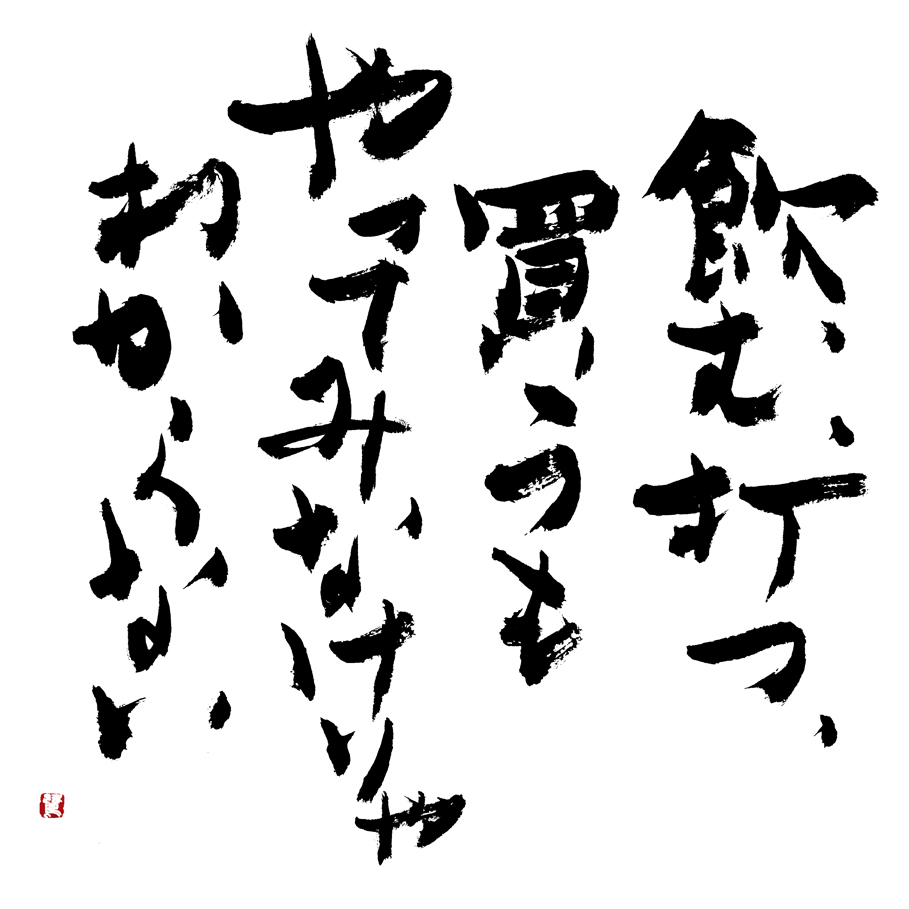 飲む、打つ、
買うも
やってみなけりゃ
わからない